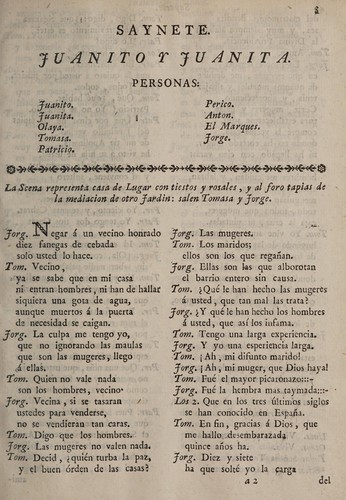 SAYNETE.
JUANITO Y JUANITA.
PERSONAS:
Juanito.
Juanita.
Olaya.
Tomasa.
Patricio.
Perico.
Anton.
El Marques.
Jorge.
La Scena representa casa de Lugar con tiestos y rosales, y al foro tapias de
la mediacion de otro Jardin: salen Tomasa y Jorge.
Jorg. Negar á un vecino honrado
diez fanegas de cebada
solo usted lo hace.
Tom. Vecino,
ya se sabe que en mi casa
ni entran hombres, ni han de hallar
siquiera una gota de agua,
aunque muertos á la puerta
de necesidad se caigan.
Jorg. La culpa me tengo yo,
que no ignorando las maulas
que son las mugeres, llego
á ellas.
Tom. Quien no vale nada
son los hombres, vecino.
Jorg. Vecina, si se tasaran
ustedes para venderse,
no se vendieran tan caras.
Tom. Digo que los hombres.
Jorg. Las mugeres no valen nada.
Tom. Decid, ¿quién turba la paz,
y el buen órden de las casas?
Jorg. Las mugeres.
Tom. Los maridos;
ellos son los que regañan.
Jorg. Ellas son las que alborotan
el barrio entero sin causa.
Tom. ¿Qué le han hecho las mugeres
á usted, que tan mal las trata?
Jorg. ¿Y qué le han hecho los hombres
á usted, que así los infama?
Tom. Tengo una larga experiencia.
Jorg. Y yo una esperiencia larga.
Tom. ¡Ah, mi difunto marido!
Jorg. ¡Ah, mi muger, que Dios haya!
Tom. Fué el mayor picaronazo:::-
Jorg. Fué la hembra mas taymada:::-
Los 2. Que en los tres últimos siglos
se han conocido en España.
Tom. En fin, gracias á Dios, que
me hallo desembarazada
quince años ha.
Jorg. Diez y siete
ha que solté yo la carga
a 2 del